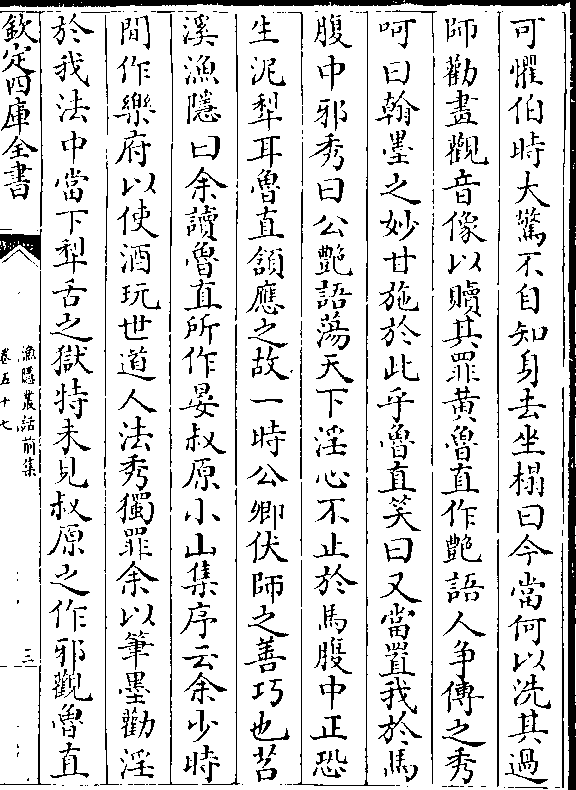 可懼伯時大驚不自知身去坐榻曰今當何以洗其過
師勸畫觀音像以贖其罪黄魯直作艷語人争傳之秀
呵曰翰墨之妙甘施於此乎魯直笑曰又當置我於馬
腹中邪秀曰公艷語蕩天下淫心不止於馬腹中正恐
生泥犁耳魯直頷應之故一時公卿伏師之善巧也苕
溪漁隱曰余讀魯直所作晏叔原小山集序云余少時
間作樂府以使酒玩世道人法秀獨罪余以筆墨勸淫
於我法中當下犁舌之獄特未見叔原之作邪觀魯直
欽定四庫全書
漁隱叢話前集
卷五十七
三